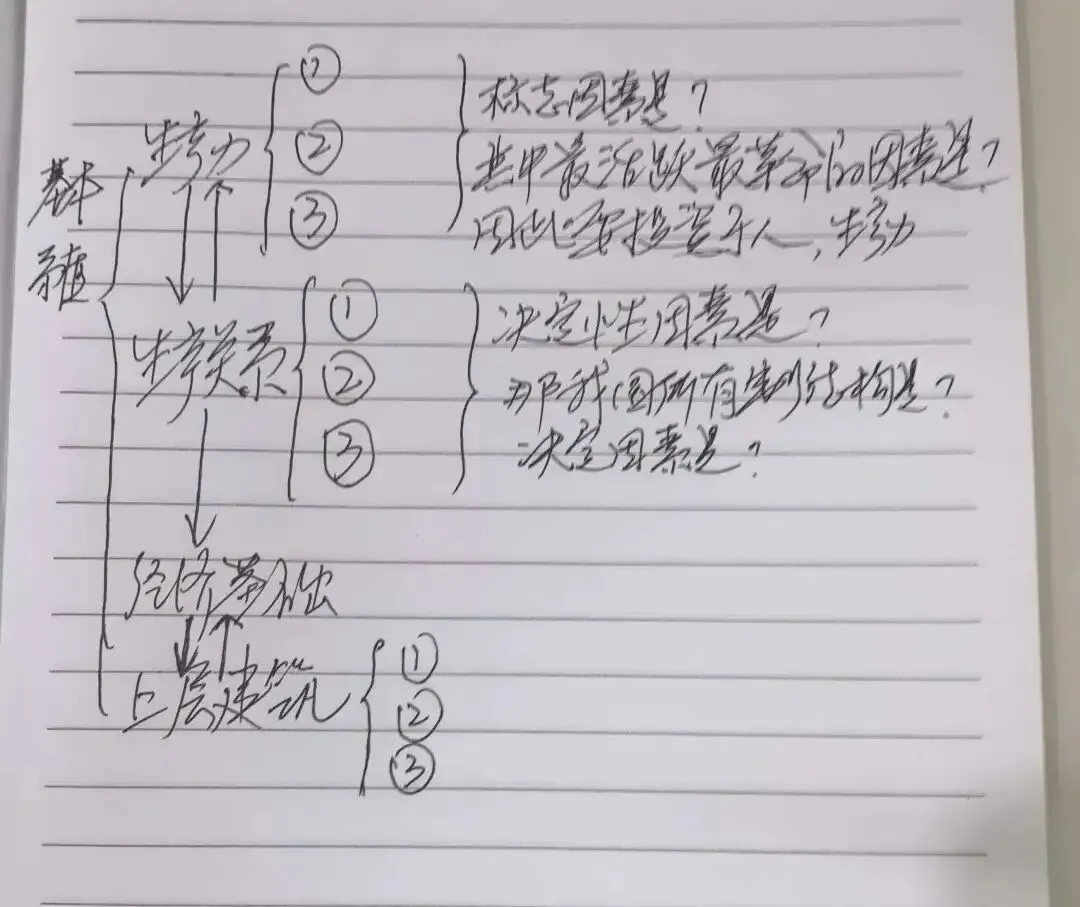 基本
矛盾
生产力
①
②
③
标志因素是？
其中最活跃最革命的因素是？
因此要投资于人，生产力
生产关系
①
②
③
决定性因素是？
那我国所有制结构是？
决定因素是？
经济基础
上层建筑
①
②
③